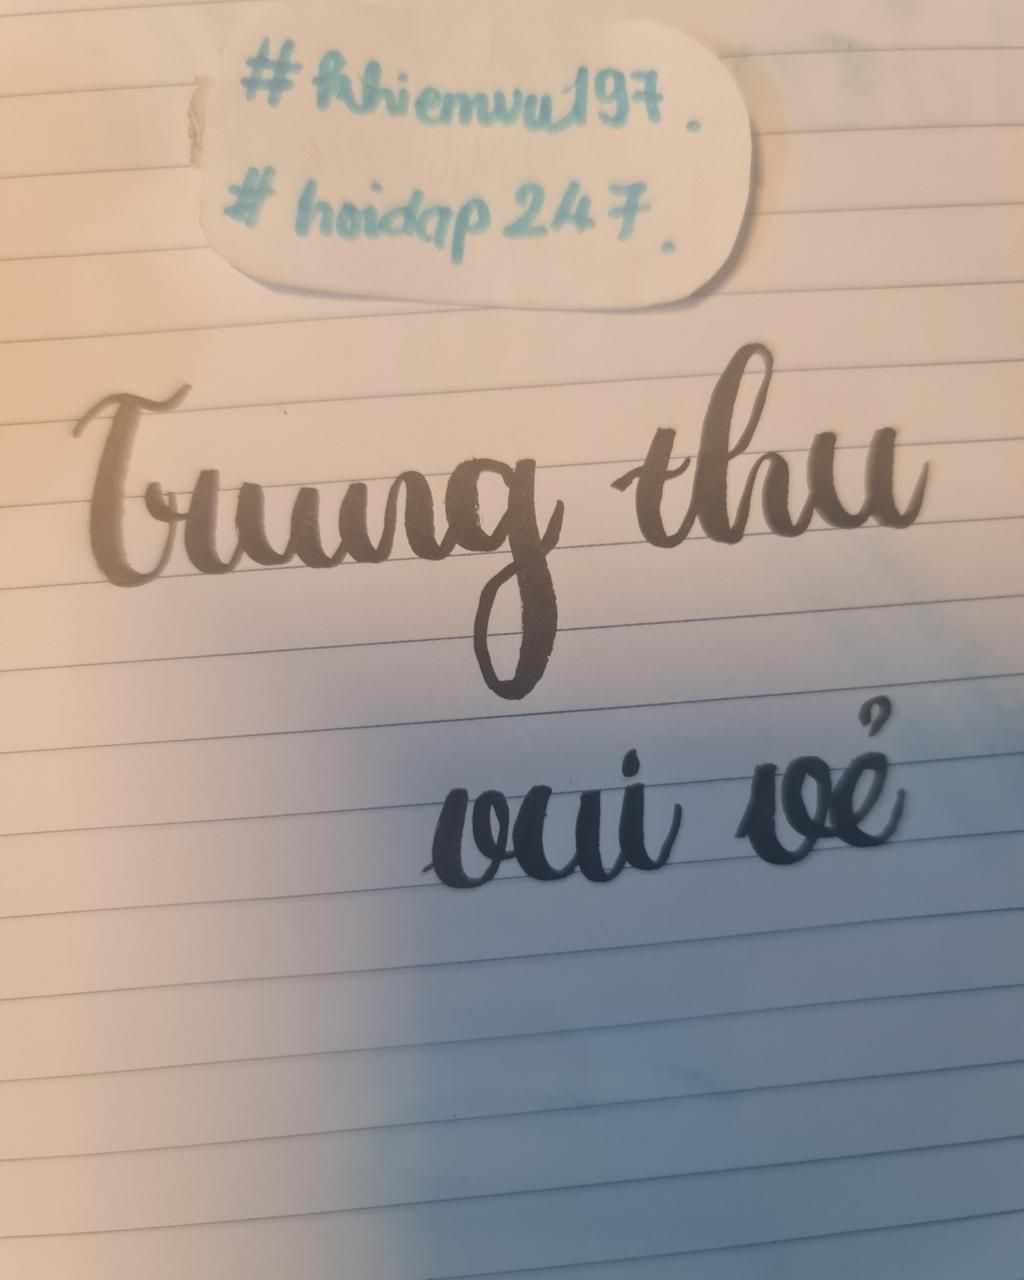 #khiemvu197.
#hoidap247.
Trung thu
vui vẻ